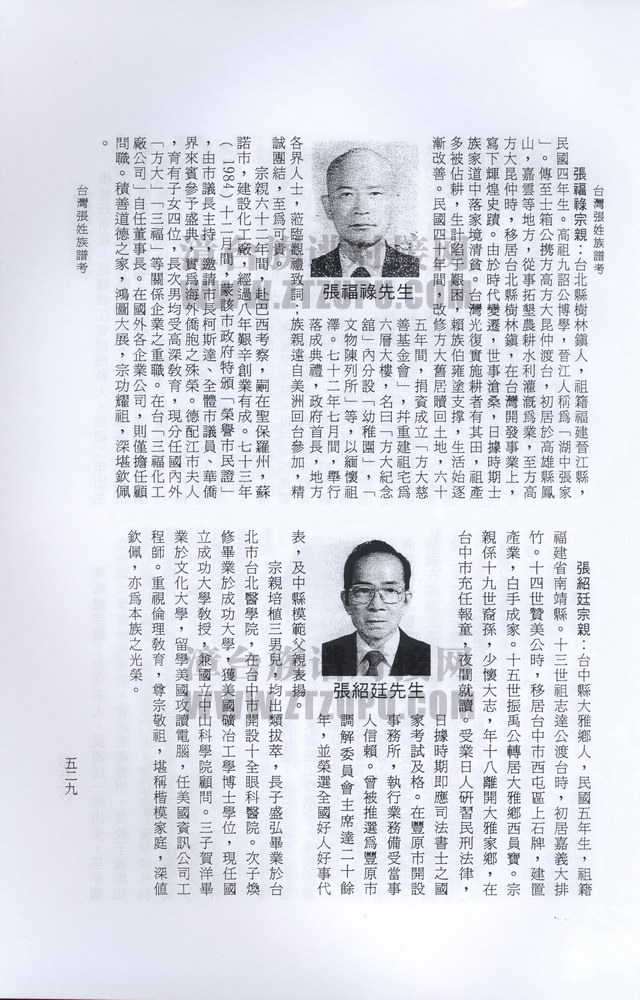 台灣張姓族譜考
張福祿宗親:台北縣樹林鎮人,祖籍福建晉江縣,
民國四年生。高祖九詔公博學,晉江人稱爲「湖中張家
」。傳至士箱公携方高方大昆仲渡台,初居於高雄縣鳳
山,嘉雲等地方,從事拓墾農耕水利灌漑爲業,至方高
方大昆仲時,移居台北縣樹林鎮,在台灣開發事業上,
寫下輝煌史蹟。由於時代變遷,世事滄桑,日據時期士
族家道中落家境清貧。台灣光復實施耕者有其田,祖產
多被佔耕,生計陷于艱困,賴族伯雍塗支撐,生活始逐
漸改善。民國四十年間,改修方大舊居贖回土地,六十
五年間,捐資成立「方大慈
善基金會」,幷重建祖宅爲
六層大樓,名曰「方大紀念
舘」內分設「幼稚園」,「
文物陳列所」等,以緬懷祖
澤。七十二年七月間,舉行
落成典禮,政府首長,地方
張福祿先生
各界人士,蒞臨觀禮致詞;族親遠自美洲回台參加,精
誠團結,至爲可貴。
宗親六十二年間,赴巴西考察,嗣在聖保羅州,蘇
諾市,建設化工廠,經過八年艱辛創業有成。七十三年
(1984)十二月間,蒙該市政府特頒「榮譽市民證」
,由市議長主持,邀請市長柯斯達、全體市議員、華僑
界來賓參予盛典,實爲海外僑胞之殊榮。德配江市夫人
,育有子女四位,長次男均受高深敎育,現分任國內外
「方大」「三福」等關係企業之重職。在台「三福化工
廠公司」自任董事長。在國外各企業公司,則僅擔任顧
問職。積善道德之家,鴻圖大展,宗功耀祖,深堪欽佩
。
張紹廷宗親:台中縣大雅鄉人,民國五年生,祖籍
福建省南靖縣。十三世祖志達公渡台時,初居嘉義大排
竹。十四世贊美公時,移居台中市西屯區上石牌,建置
產業,白手成家。十五世振禹公轉居大雅鄉西員寶。宗
親係十九世裔孫,少懷大志,年十八離開大雅家鄉,在
台中市充任報童,夜間就讀。受業日人研習民刑法律,
日據時期即應司法書士之國
家考試及格。在豐原市開設
事務所,執行業務備受當事
人信賴。曾被推選爲豐原市
調解委員會主席達二十餘
年,並榮選全國好人好事代
張紹廷先生
表,及中縣模範父親表揚。
宗親培植三男兒,均出類拔萃,長子盛弘畢業於台
北市台北醫學院,在台中市開設十全眼科醫院。次子煥
修畢業於成功大學,獲美國礦冶工學博士學位,現任國
立成功大學敎授,兼國立中山科學院顧問。三子賀洋畢
業於文化大學,留學美國攻讀電腦,任美國資訊公司工
程師。重視倫理敎育,尊宗敬祖,堪稱楷模家庭,深値
欽佩,亦爲本族之光榮。
台灣張姓族譜考
五二九
漳台族谱对接网
WWW.ZTZUPU.COM
漳台族谱对接网
WWW.ZTZUPU.COM